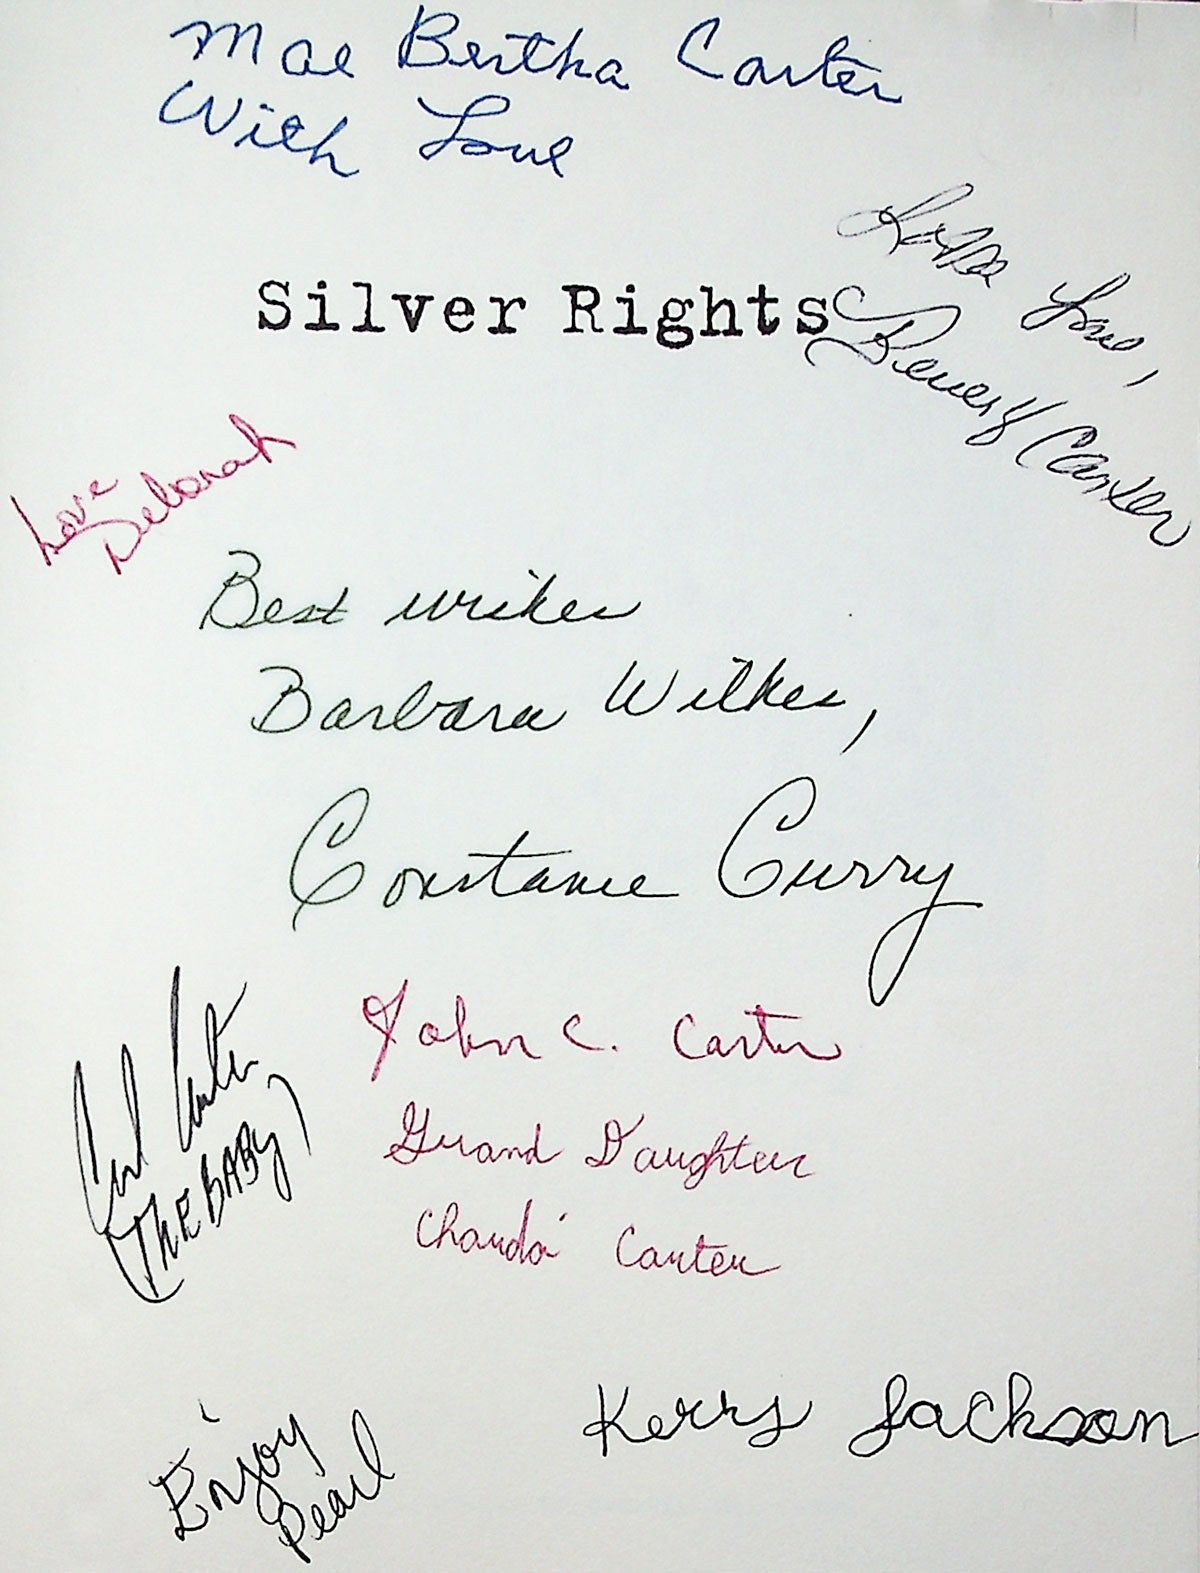 Mae Bertha Carter
With Love
Love,
Silver Rights
Beverly Carter
Love
Deborah
Best wishes
Barbara Wilkes,
Constance Curry
John C. Carter
Carl Carter
(THE BABY)
Grand Daughter
Chanda Carter
Kerry Jackson
Enjoy
Pearl